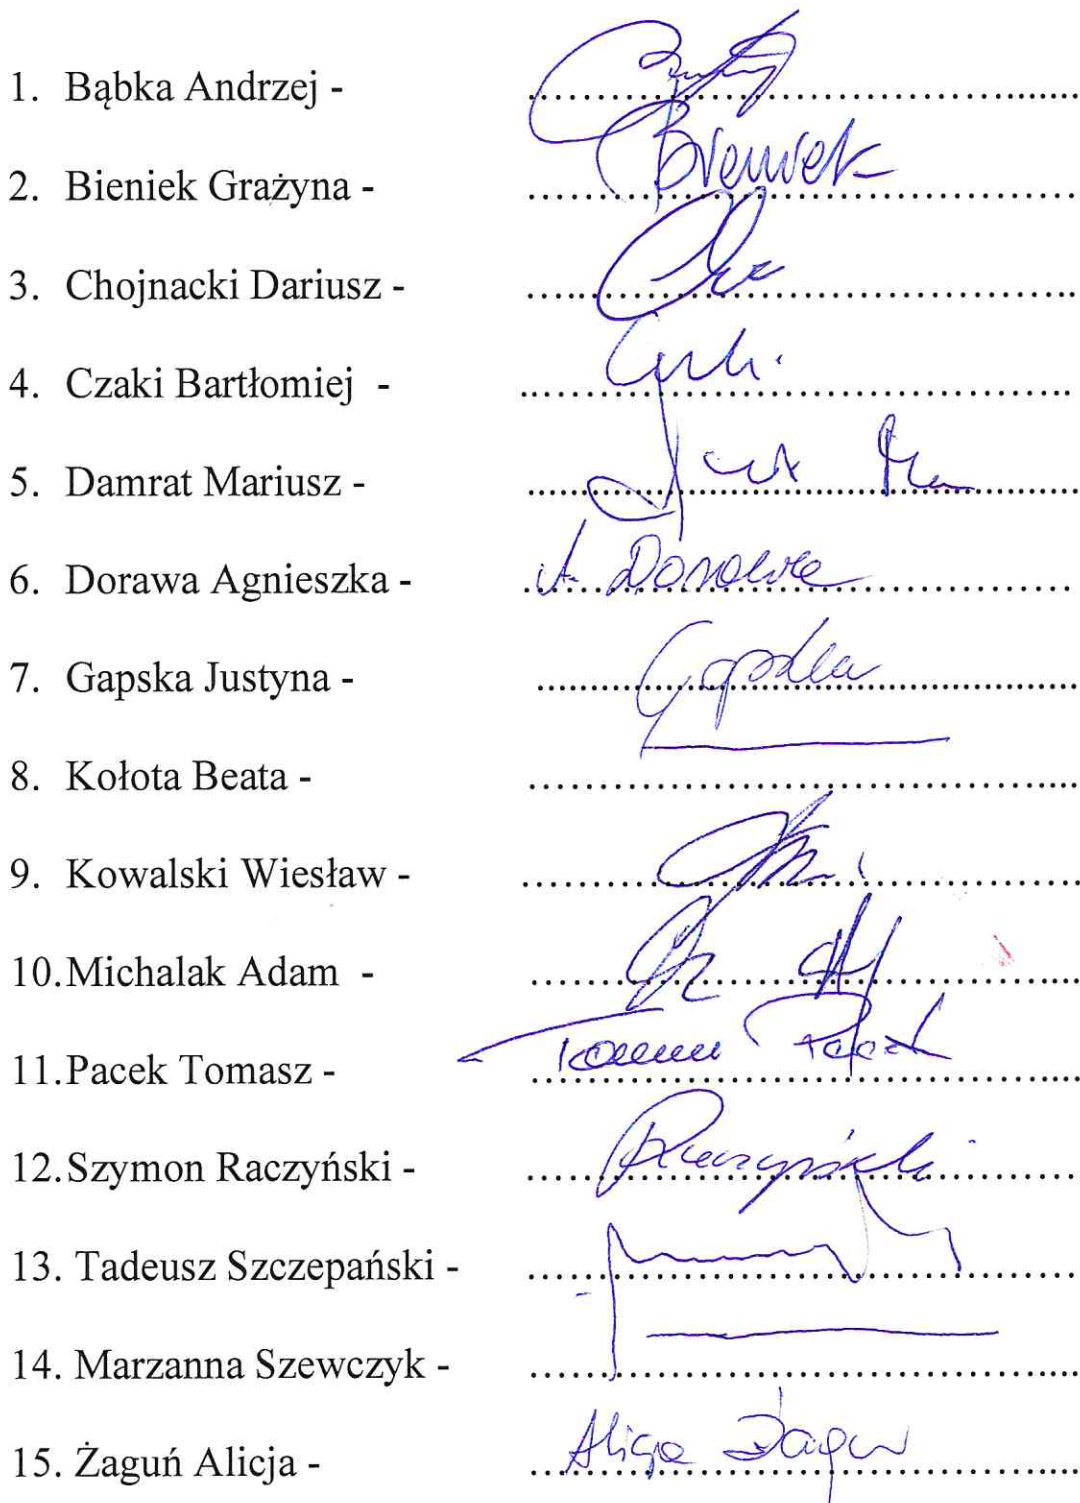 1. Bąbka Andrzej - ........................................
2. Bieniek Grażyna - ........................................ Bieniek
3. Chojnacki Dariusz - ........................................
4. Czaki Bartłomiej - ........................................
5. Damrat Mariusz - ........................................
6. Dorawa Agnieszka - ........................................ A. Dorawa
7. Gapska Justyna - ........................................ Gapska
8. Kołota Beata - ........................................
9. Kowalski Wiesław - ........................................
10. Michalak Adam - ........................................
11. Pacek Tomasz - ........................................ Tomasz Pacek
12. Szymon Raczyński - ........................................ Raczyński
13. Tadeusz Szczepański - ........................................
14. Marzanna Szewczyk - ........................................
15. Żaguń Alicja - ........................................ Alicja Żaguń